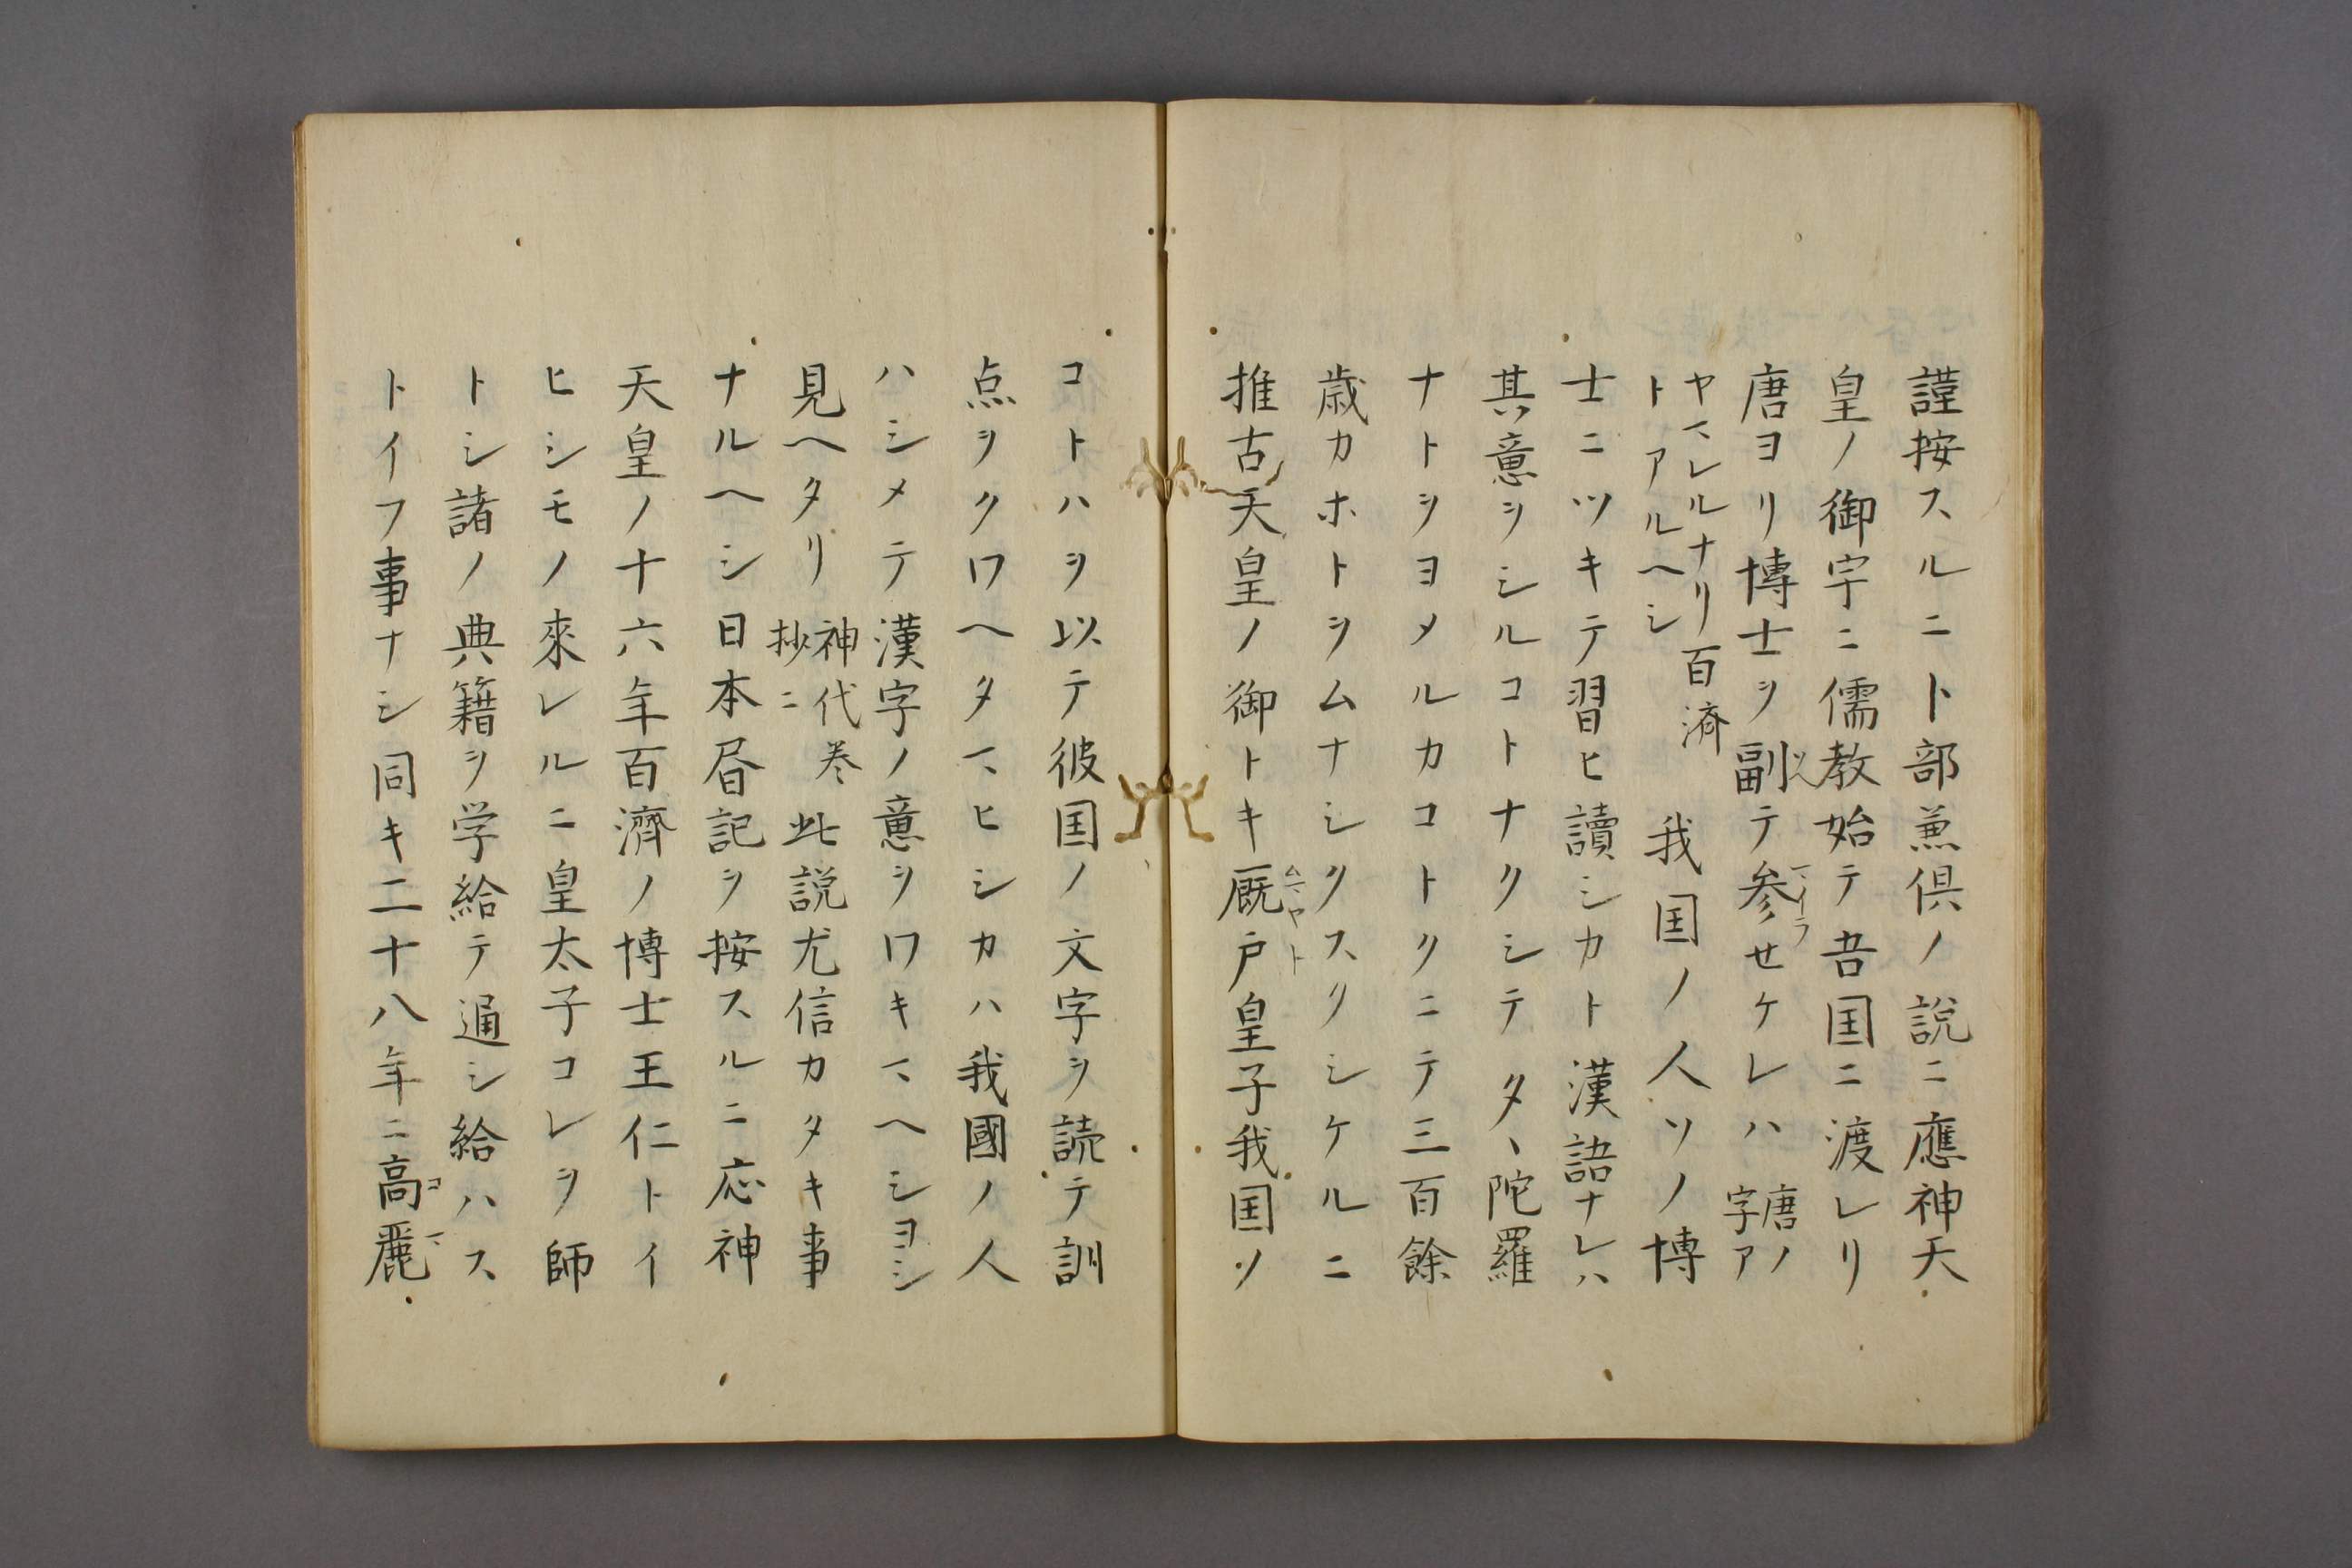 謹按スルニト部兼倶ノ説ニ應神天
皇ノ御宇ニ儒教始テ吾国ニ渡レリ
唐ヨリ博士ヲ副テ参セケレハ 唐ノ字ア
ヤマレルナリ百済トアルヘシ 我国ノ人ソノ博
士ニツキテ習ヒ讀シカト漢語ナレハ
其意ヲシルコトナクシテタヽ陀羅
ナトヲヨメルカコトクニテ三百餘
歳カホトヲムナシクスクシケルニ
推古天皇ノ御トキ厩戸皇子我国ソ
ムマヤト
マイラ
コトハヲ以テ彼国ノ文字ヲ読テ訓
点ヲクワヘタマヒシカハ我國ノ人
ハシメテ漢字ノ意ヲワキマヘシヨシ
見ヘタリ 神代巻抄ニ 此説尤信カタキ事
ナルヘシ日本昏記ヲ按スルニ応神
天皇ノ十六年百濟ノ博士王仁トイ
ヒシモノ來レルニ皇太子コレヲ師
トシ諸ノ典籍ヲ学給テ通シ給ハス
トイフ事ナシ同キ二十八年ニ高麗
コマ